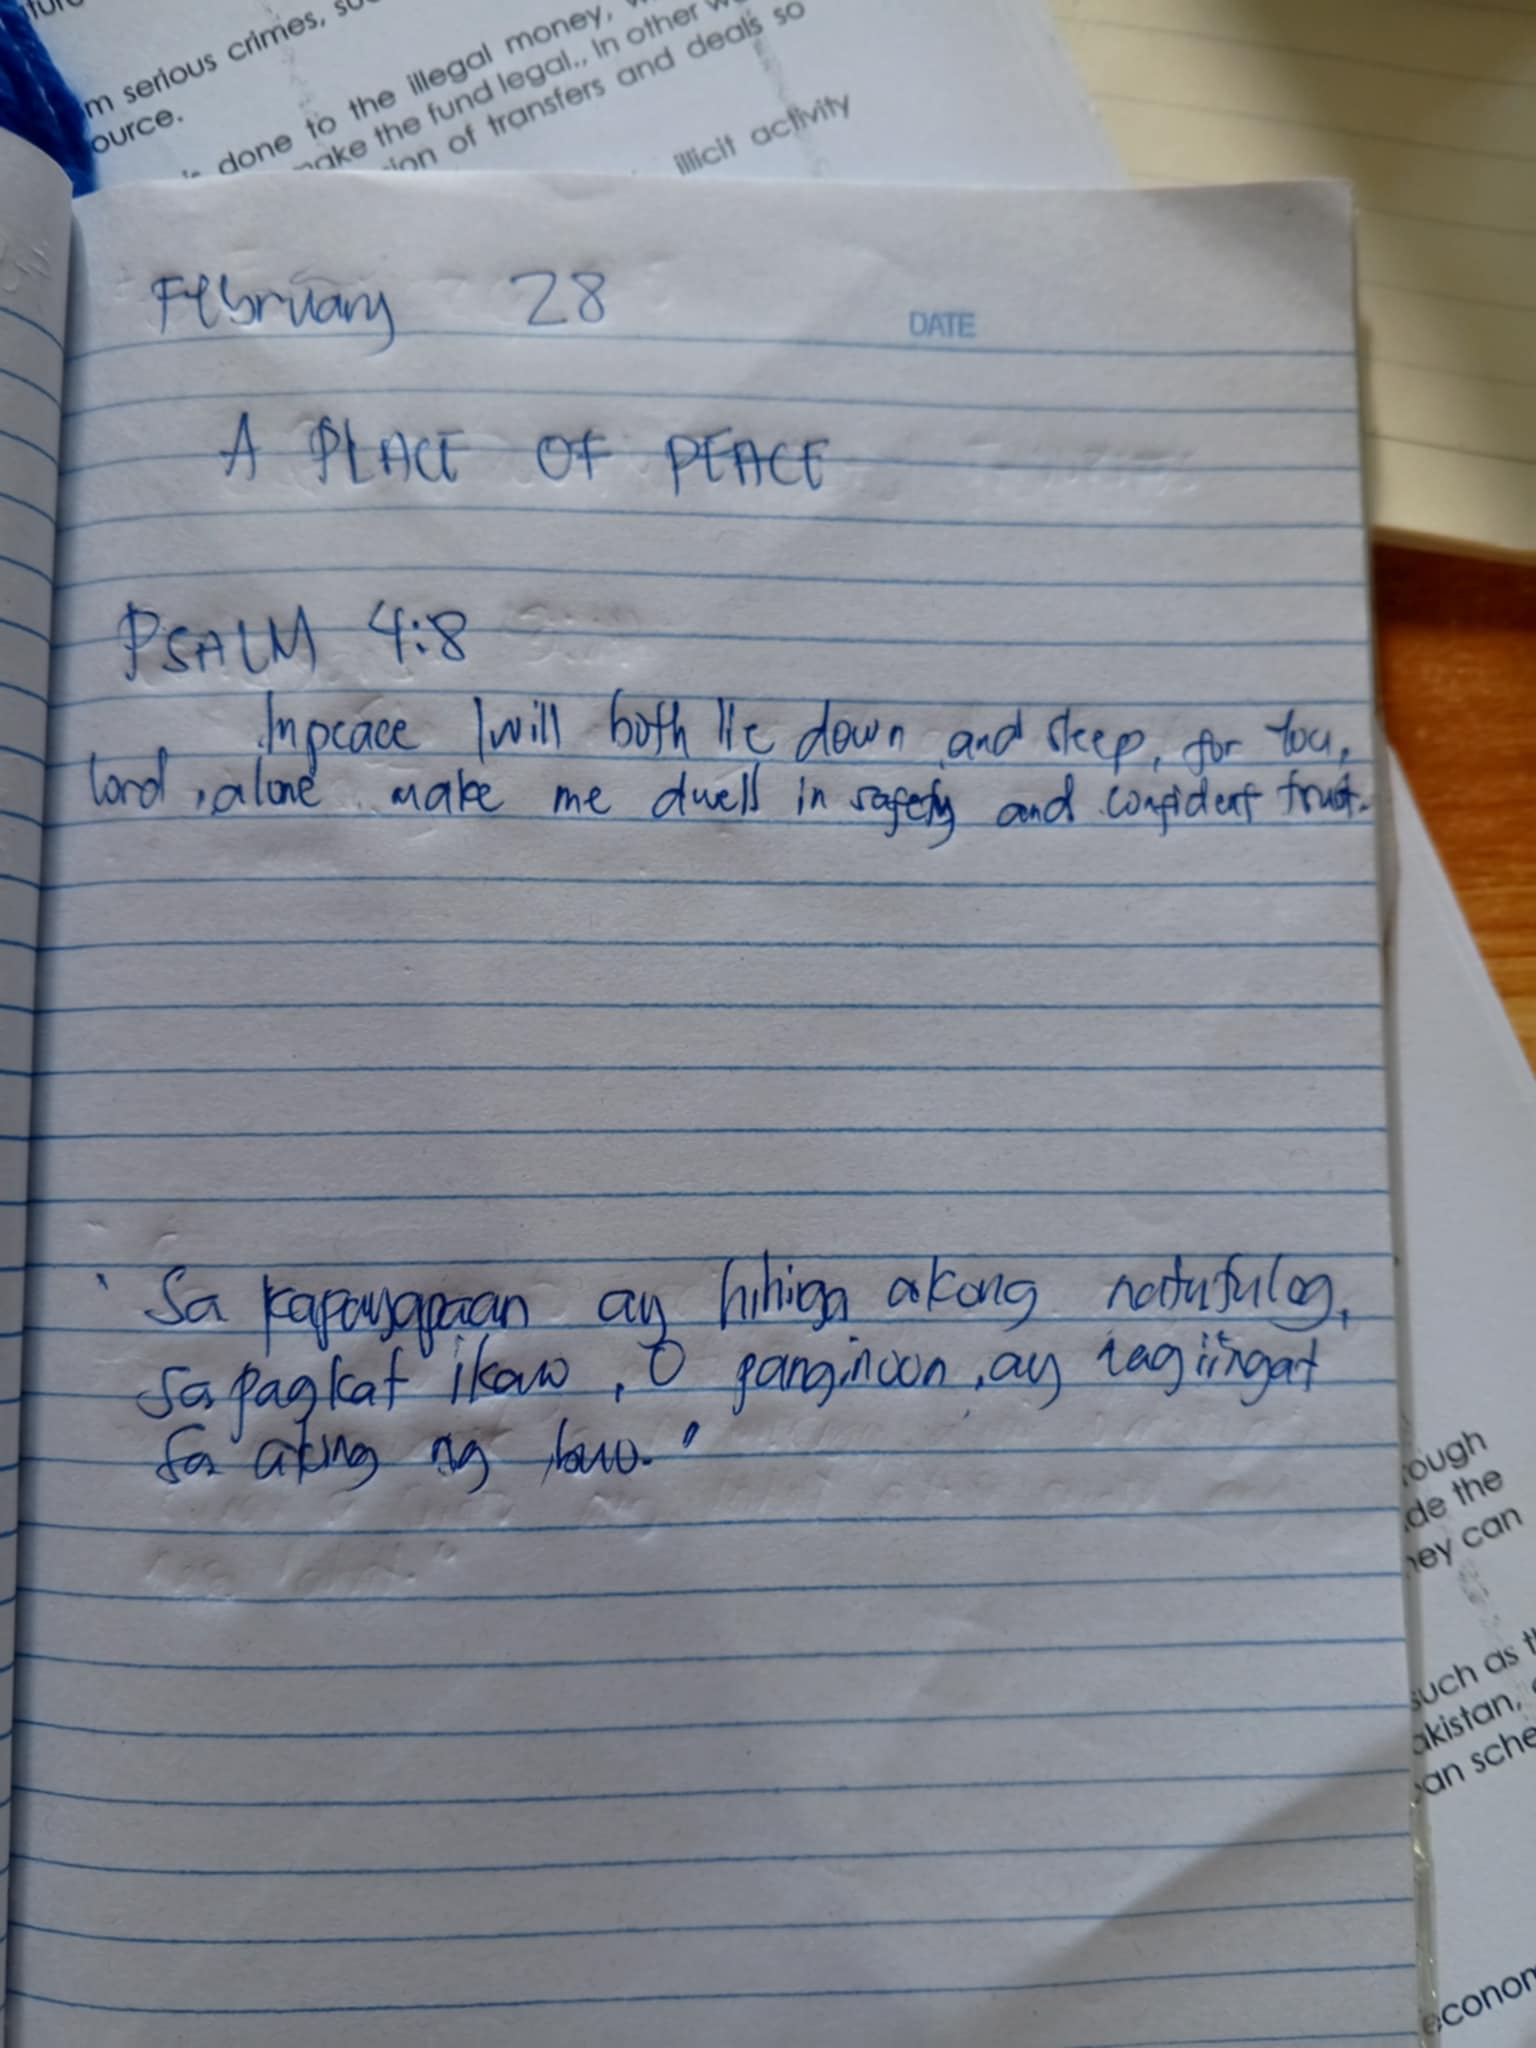 m serious crimes,
ource.
done to the illegal money,
make the fund legal., in other
ion of transfers and deals so
illicit activity
February 28
DATE
A PLACE OF PEACE
PSALM 4:8
In peace I will both lie down and sleep, for You,
lord, alone make me dwell in safety and confident trust.
Sa kapayapaan ay hihiga akong natutulog,
sapagkat ikaw, O panginoon, ay tagiingat
sa aking ng
ough
de the
hey can
such as th
akistan,
an sche
econom